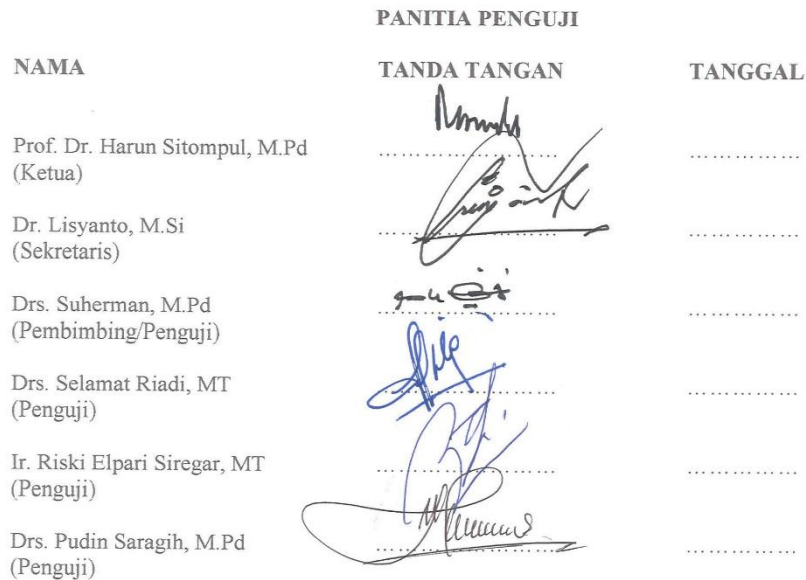 PANITIA PENGUJI
NAMA TANDA TANGAN TANGGAL
Prof. Dr. Harun Sitompul, M.Pd ........................ ..................
(Ketua)
Dr. Lisyanto, M.Si ........................ ..................
(Sekretaris)
Drs. Suherman, M.Pd ........................ ..................
(Pembimbing/Penguji)
Drs. Selamat Riadi, MT ........................ ..................
(Penguji)
Ir. Riski Elpari Siregar, MT ........................ ..................
(Penguji)
Drs. Pudin Saragih, M.Pd ........................ ..................
(Penguji)